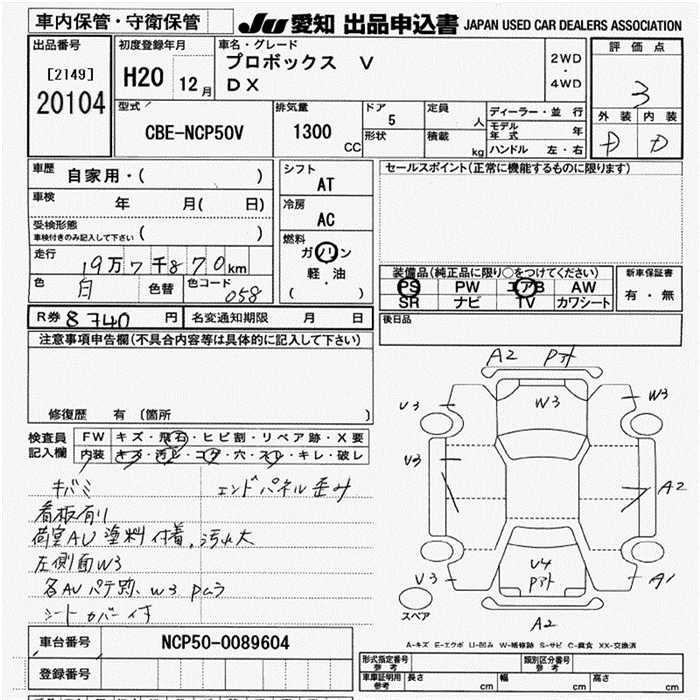 車内保管・守衛保管
JU 愛知 出品申込書 JAPAN USED CAR DEALERS ASSOCIATION
出品番号
[2149]
20104
初度登録年月
H20 12月
車名・グレード
プロボックス V
DX
2WD
・
4WD
評価点
3
外装 内装
D D
型式
CBE-NCP50V
排気量
1300
CC
ドア
5
形状
定員
人
積載
kg
ディーラー・並行
モデル年式 年
ハンドル 左・右
車歴 自家用・( )
車検 年 月( 日)
受検形態
車検付きのみ記入して下さい ( )
走行 19万7千870km
色 白 色替 色コード 058
シフト
AT
冷房
AC
燃料
ガソリン
軽・油
( )
セールスポイント(正常に機能するものに限ります)
装備品(純正品に限り○をつけてください)
PS PW エアB AW
SR ナビ TV カワシート
新車保証書
有・無
R券 8740 円 名変通知期限 月 日
後日品
注意事項申告欄(不具合内容等は具体的に記入して下さい)
修復歴 有 (箇所 )
検査員
記入欄
FW キズ・飛石・ヒビ割・リペア跡・X要
内装 キズ・汚レ・コゲ・穴・スレ・キレ・破レ
キバミ
エンドパネル歪み
看板有り
荷室AU 塗料付着、汚れ大
左側面W3
各AU パテ跡、W3 Pムラ
シートカバー付
A2 Pアト
V3 W3 W3
V3 A2
V3 V4 Pアト A1
スペア
A2
A-キズ E-エクボ U-凹み W-補修跡 S-サビ C-腐食 XX-交換済
車台番号 NCP50-0089604
登録番号
形式指定番号
参考
類別区分番号
参考
車庫証明用
参考
長さ cm 幅 cm 高さ cm